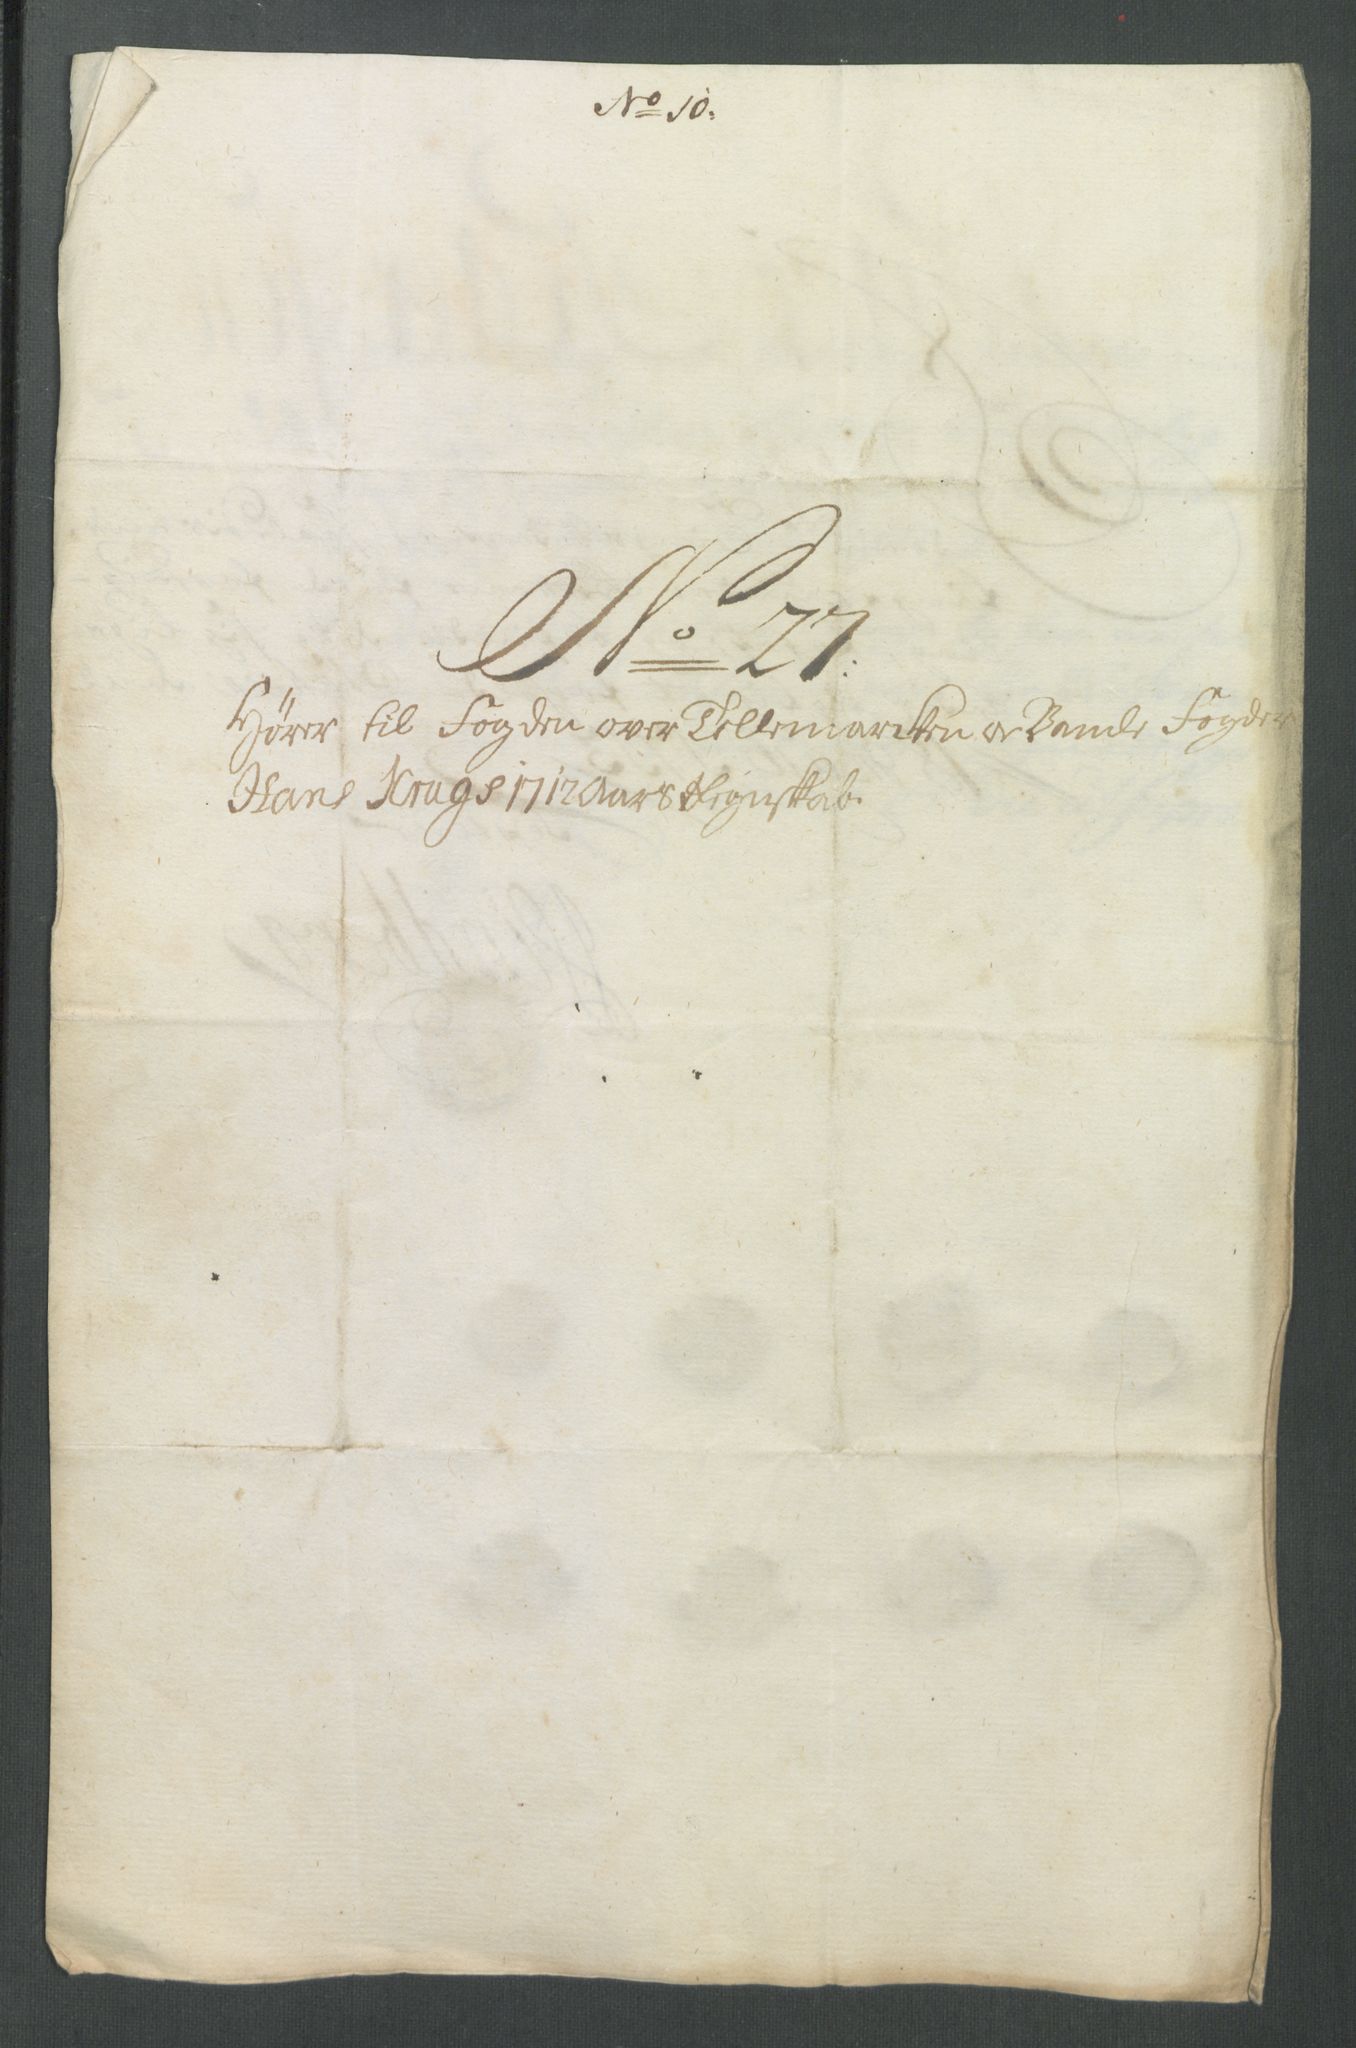 No 10:
No 27:
Hører til Fogden over Tellemarcken oc Bamle Fogderi
Hans Krugs 1712 Aars Regnskab.